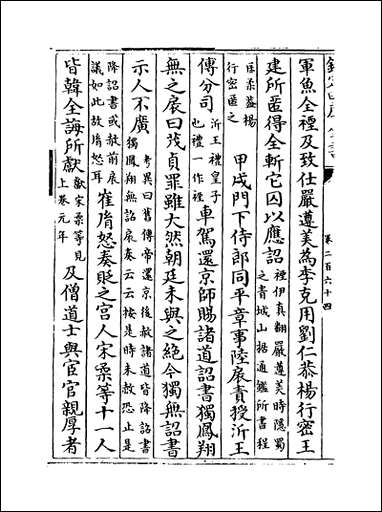 欽定四庫全書
卷二百六十四
軍魚全禋及致仕嚴遵美為李克用劉仁恭楊行密王
建所匿得全斬它囚以應詔禋伊真翻嚴遵美時隱蜀之青城山據通鑑所書程
匡柔蓋楊行密匿之甲戌門下侍郎同平章事陸扆責授沂王
傅分司沂王禋皇子也禋一作禋車駕還京師賜諸道詔書獨鳳翔
無之扆曰茂貞罪雖大然朝廷未與之絶今獨無詔書
示人不廣考異曰舊傳帝還京後赦諸道皆降詔書獨鳳翔無詔扆奏云云按是時未赦恐止是
降詔書或赦前扆議如此故㣧怒耳崔㣧怒奏貶之宮人宋柔等十一人
皆韓全誨所獻獻宋柔等見上卷元年及僧道士與宦官親厚者